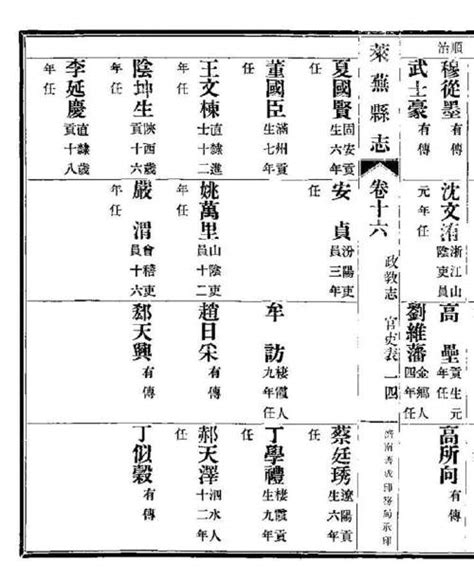 順治
穆從墨 有傳
沈文洧 浙江山陰吏員元年任
高壘 貢生元年任
高所向 有傳
武士豪 有傳
劉維藩 金鄉人四年任
萊蕪縣志 卷十六 政教志 官吏表 一四
濟南善成印務局承印
夏國賢 固安貢生六年任
安貞 汾陽吏員三年任
蔡廷琇 遼陽貢生六年任
董國臣 滿州貢生七年任
牟訪 棲霞人九年任
丁學禮 棲霞貢生九年任
王文棟 直隸進士十二年任
姚萬里 山陰吏員十二年任
趙日采 有傳
郝天澤 泗水人十二年任
陰坤生 陝西歲貢十六年任
嚴渭 會稽吏員十六年任
天興 有傳
丁似穀 有傳
李延慶 直隸歲貢十八年任